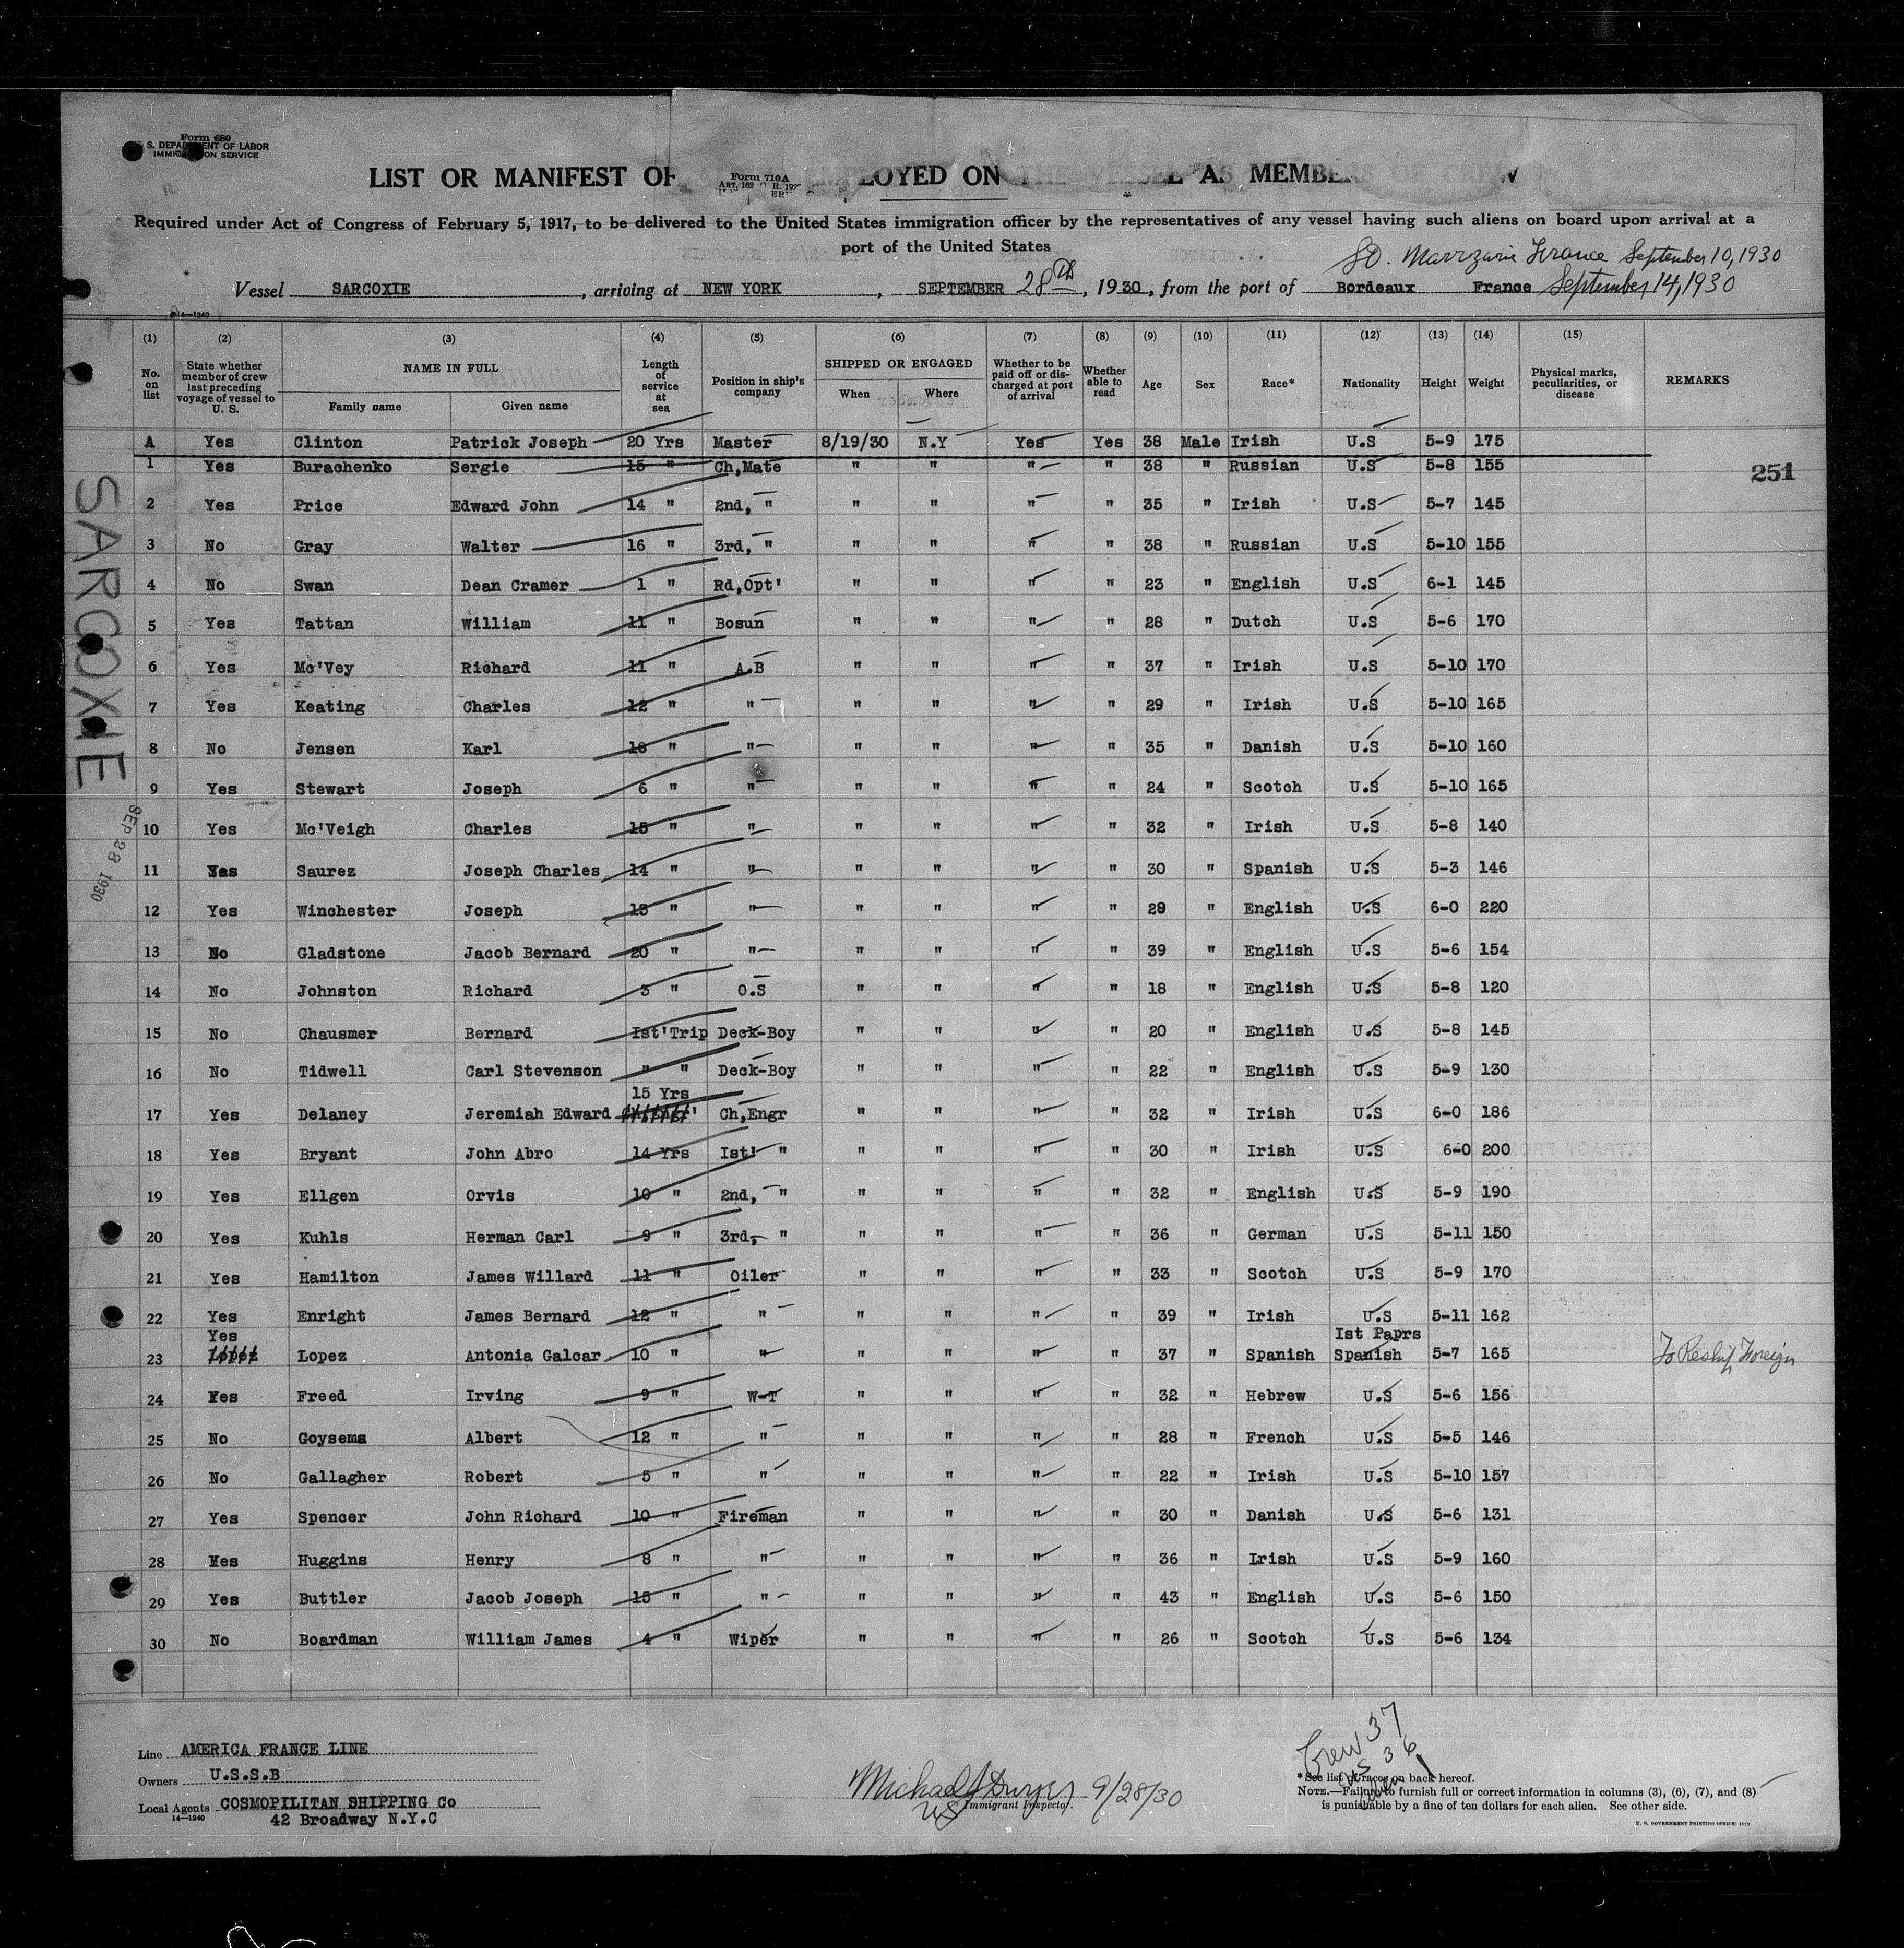 Form 680
S. DEPARTMENT OF LABOR
IMMIGRATION SERVICE
LIST OR MANIFEST OF EMPLOYED ON THE VESSEL AS MEMBERS OF
Form 710A
Required under Act of Congress of February 5, 1917, to be delivered to the United States immigration officer by the representatives of any vessel having such aliens on board upon arrival at a
port of the United States
France September 10, 1930
Vessel SARCOXIE, arriving at NEW YORK, SEPTEMBER 28th, 1930, from the port of Bordeaux France September, 14, 1930
14—1240
(1) (2) (3) (4) (5) (6) (7) (8) (9) (10) (11) (12) (13) (14) (15)
No. on list State whether member of crew last preceding voyage of vessel to U. S. NAME IN FULL Family name Given name Length of service at sea Position in ship's company SHIPPED OR ENGAGED When Where Whether to be paid off or discharged at port of arrival Whether able to read Age Sex Race* Nationality Height Weight Physical marks, peculiarities, or disease REMARKS
A Yes Clinton Patrick Joseph 20 Yrs Master 8/19/30 N.Y Yes Yes 38 Male Irish U.S 5-9 175
1 Yes Burachenko Sergie 15 " Ch,Mate " " " " 38 " Russian U.S 5-8 155
251
2 Yes Price Edward John 14 " 2nd, " " " " " 35 " Irish U.S 5-7 145
3 No Gray Walter 16 " 3rd, " " " " " 38 " Russian U.S 5-10 155
4 No Swan Dean Cramer 1 " Rd,Opt' " " " " 23 " English U.S 6-1 145
5 Yes Tattan William 11 " Bosun " " " " 28 " Dutch U.S 5-6 170
6 Yes Mc'Vey Richard 11 " A.B " " " " 37 " Irish U.S 5-10 170
7 Yes Keating Charles 12 " " " " " " 29 " Irish U.S 5-10 165
8 No Jensen Karl 18 " " " " " " 35 " Danish U.S 5-10 160
9 Yes Stewart Joseph 6 " " " " " " 24 " Scotch U.S 5-10 165
10 Yes Mc'Veigh Charles 15 " " " " " " 32 " Irish U.S 5-8 140
11 Yes Saurez Joseph Charles 14 " " " " " " 30 " Spanish U.S 5-3 146
12 Yes Winchester Joseph 15 " " " " " " 29 " English U.S 6-0 220
13 No Gladstone Jacob Bernard 20 " " " " " " 39 " English U.S 5-6 154
14 No Johnston Richard 3 " O.S " " " " 18 " English U.S 5-8 120
15 No Chausmer Bernard Ist'Trip Deck-Boy " " " " 20 " English U.S 5-8 145
16 No Tidwell Carl Stevenson " " Deck-Boy " " " " 22 " English U.S 5-9 130
15 Yrs
17 Yes Delaney Jeremiah Edward Ch,Engr' Ch,Engr " " " " 32 " Irish U.S 6-0 186
18 Yes Bryant John Abro 14 Yrs Ist' " " " " " 30 " Irish U.S 6-0 200
19 Yes Ellgen Orvis 10 " 2nd, " " " " " 32 " English U.S 5-9 190
20 Yes Kuhls Herman Carl 9 " 3rd, " " " " " 36 " German U.S 5-11 150
21 Yes Hamilton James Willard 11 " Oiler " " " " 33 " Scotch U.S 5-9 170
22 Yes Enright James Bernard 12 " " " " " " 39 " Irish U.S 5-11 162
Yes Ist Paprs
23 Lopez Lopez Antonia Galcar 10 " " " " " " 37 " Spanish Spanish 5-7 165 To Reship Foreign
24 Yes Freed Irving 9 " W-T " " " " 32 " Hebrew U.S 5-6 156
25 No Goysema Albert 12 " " " " " " 28 " French U.S 5-5 146
26 No Gallagher Robert 5 " " " " " " 22 " Irish U.S 5-10 157
27 Yes Spencer John Richard 10 " Fireman " " " " 30 " Danish U.S 5-6 131
28 Yes Huggins Henry 8 " " " " " " 36 " Irish U.S 5-9 160
29 Yes Buttler Jacob Joseph 15 " " " " " " 43 " English U.S 5-6 150
30 No Boardman William James 4 " Wiper " " " " 26 " Scotch U.S 5-6 134
SARCOXIE
SEP 28 1930
Line AMERICA FRANCE LINE
Owners U.S.S.B
Local Agents COSMOPILITAN SHIPPING Co
14—1240
42 Broadway N.Y.C
Michael J Dwyer 9/28/30
US Immigrant Inspector.
Crew 37
US 36
Alien 1
*See list of races on back hereof.
NOTE.—Failure to furnish full or correct information in columns (3), (6), (7), and (8)
is punishable by a fine of ten dollars for each alien. See other side.